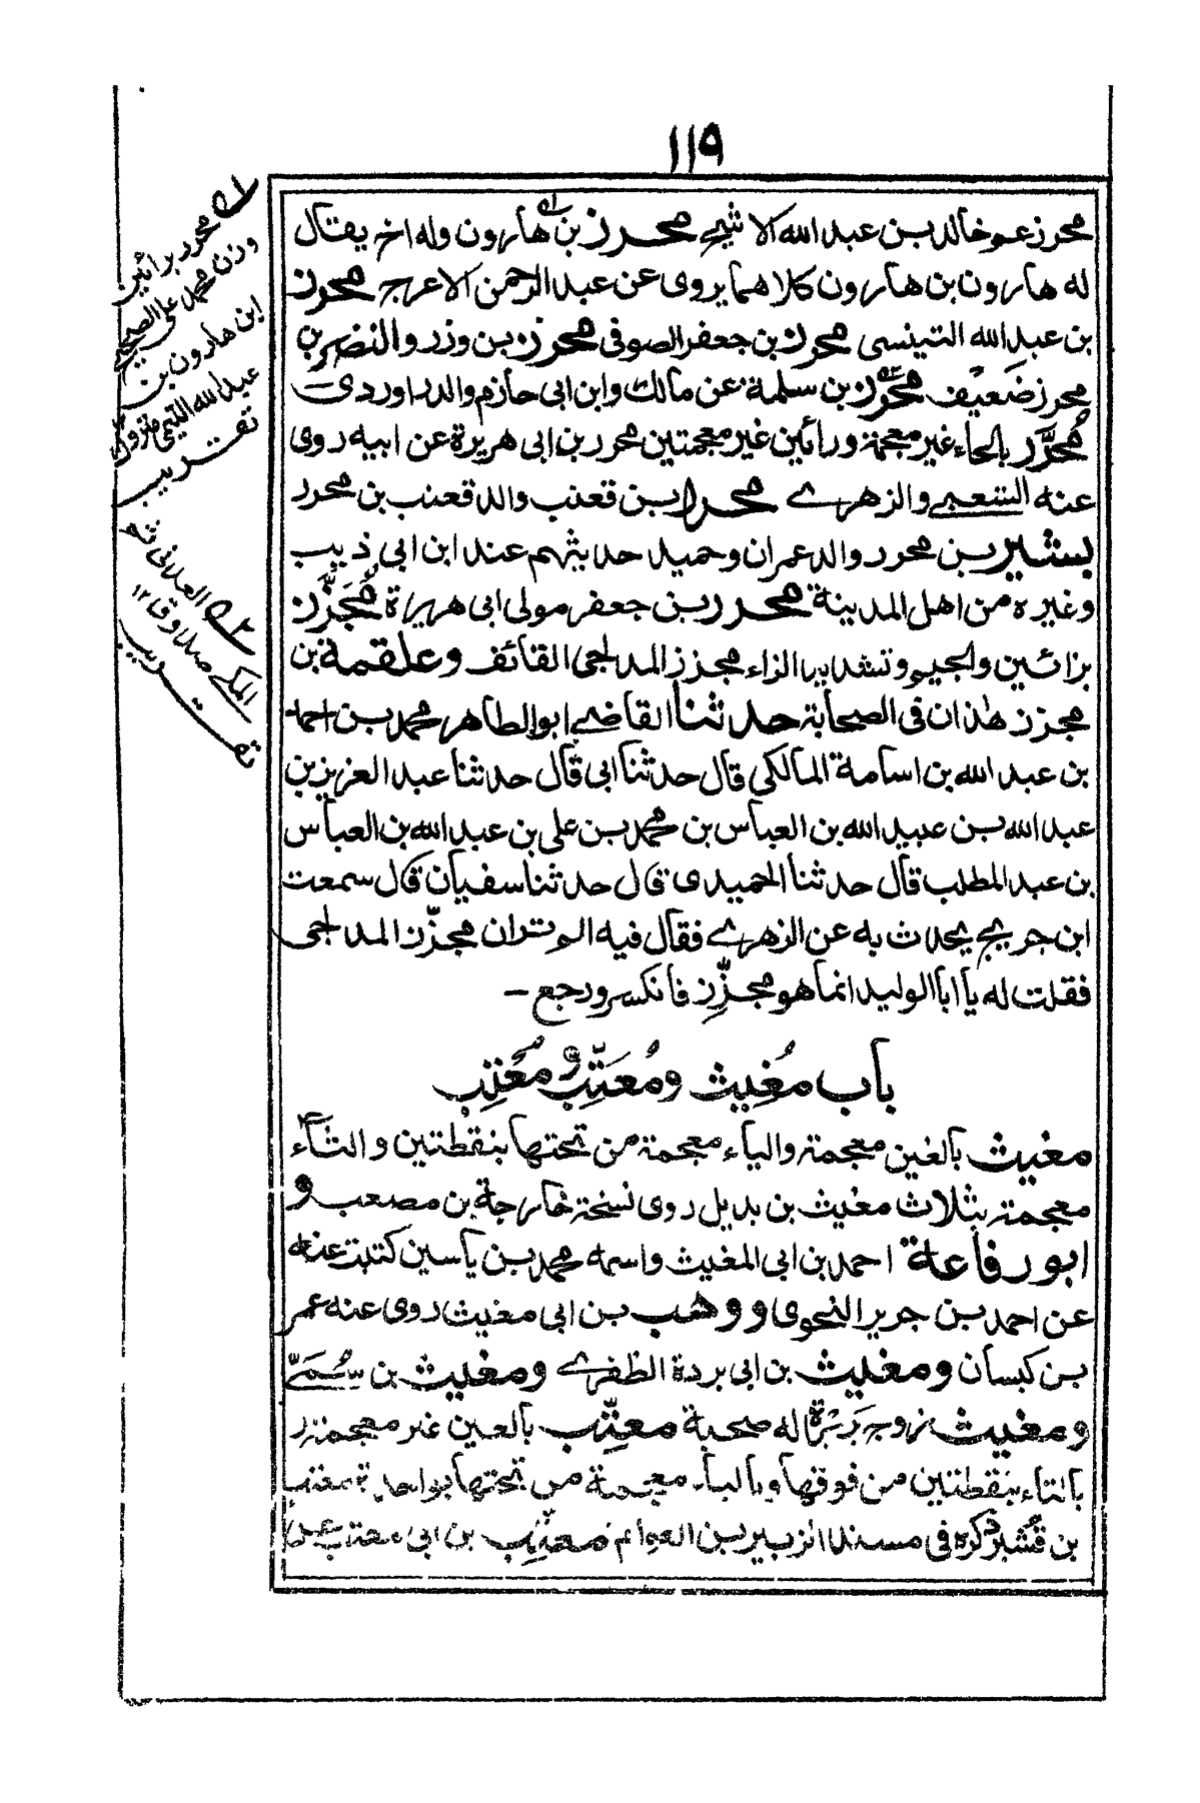 ١١٩
محرز عم خالد بن عبد الله الا شجے محرز بن هارون وله اخ يقال
له هارون بن هارون كلا هما يروى عن عبد الرحمن الاعرج محرز
بن عبد الله التينسى محرز بن جعفر الصوفى محرز بن وزر والنضر بن
محرز ضَعيف محرَّز بن سلمة عن مالك وابن ابى حازم والدراوردى
مُحرَّر بالحاء غير معجمة ورائين غير معجمتين محرر بن ابى هريرة عن ابيه روى
عنه الشعبے والزهرے محرر بن قعنب والد قعنب بن محرر
بشير بن محرر والد عمران وحميد حديثهم عند ابن ابى ذيب
وغيره من اهل المدينة محرر بن جعفر مولى ابى هريرة مُجَزَّز
بزائين والجيم وتشديد الزاء مجزز المدلجى القائف وعلقمة بن
مجزز هذان فى الصحابة حدثنا القاضے ابو الطاهر محمد بن احمد
بن عبد الله بن اسامة المالكى قال حدثنا ابى قال حدثنا عبد العزيز بن
عبد الله بن عبيد الله بن العباس بن محمد بن على بن عبد الله بن العباس
بن عبد المطلب قال حدثنا الحميدى قال حدثنا سفيان قال سمعت
ابن جريج يحدث به عن الزهرے فقال فيه الم تر ان مجزّز المدلجى
فقلت له يا ابا الوليد انما هو مجزِّز فانكسر ورجع –
باب مُغِيث ومُعَتِّب ومُعْتِب
مغيث بالغين معجمة والياء معجمة من تحتها بنقطتين والثاء
معجمة بثلاث مغيث بن بديل روى نسخة خارجة بن مصعب و
ابو رفاعة احمد بن ابى المغيث واسمه محمد بن ياسين كتبت عنه
عن احمد بن جرير النحوى و وهب بن ابى مغيث روى عنه عمر
بن كيسان ومغيث بن ابى بردة الظفرے ومغيث بن سُمَىّ
ومغيث زوج بَرِيْرَة له صحبة معتِّب بالعين غير معجمة
بالتاء بنقطتين من فوقها وبالباء معجمة من تحتها بواحدة معتب
بن قُشير ذكره فى مسند الزبير بن العوام معتِّب بن ابى معتب عن
ا؎ محرر برائين
وزن محمد على الصحيح
ابن هارون بن
عبد الله التيمى متروك
تقريب
٢؎ العدنى ثم
المكے صدوق ١٢
تقريب